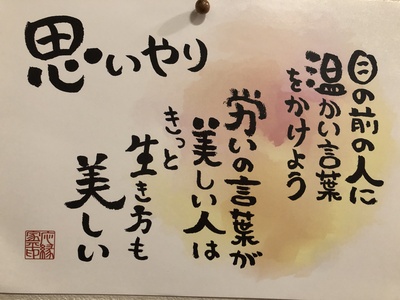 思いやり
目の前の人に
温かい言葉
をかけよう
労いの言葉が
美しい人は
きっと
生き方も
美しい